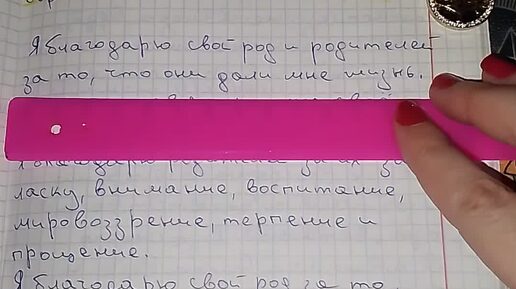 Я благодарю свой род и родителей
за то, что они дали мне жизнь.
Я благодарю
ласку, внимание, воспитание,
мировоззрение, терпение и
прощение.
Я благодарю свой род за то,